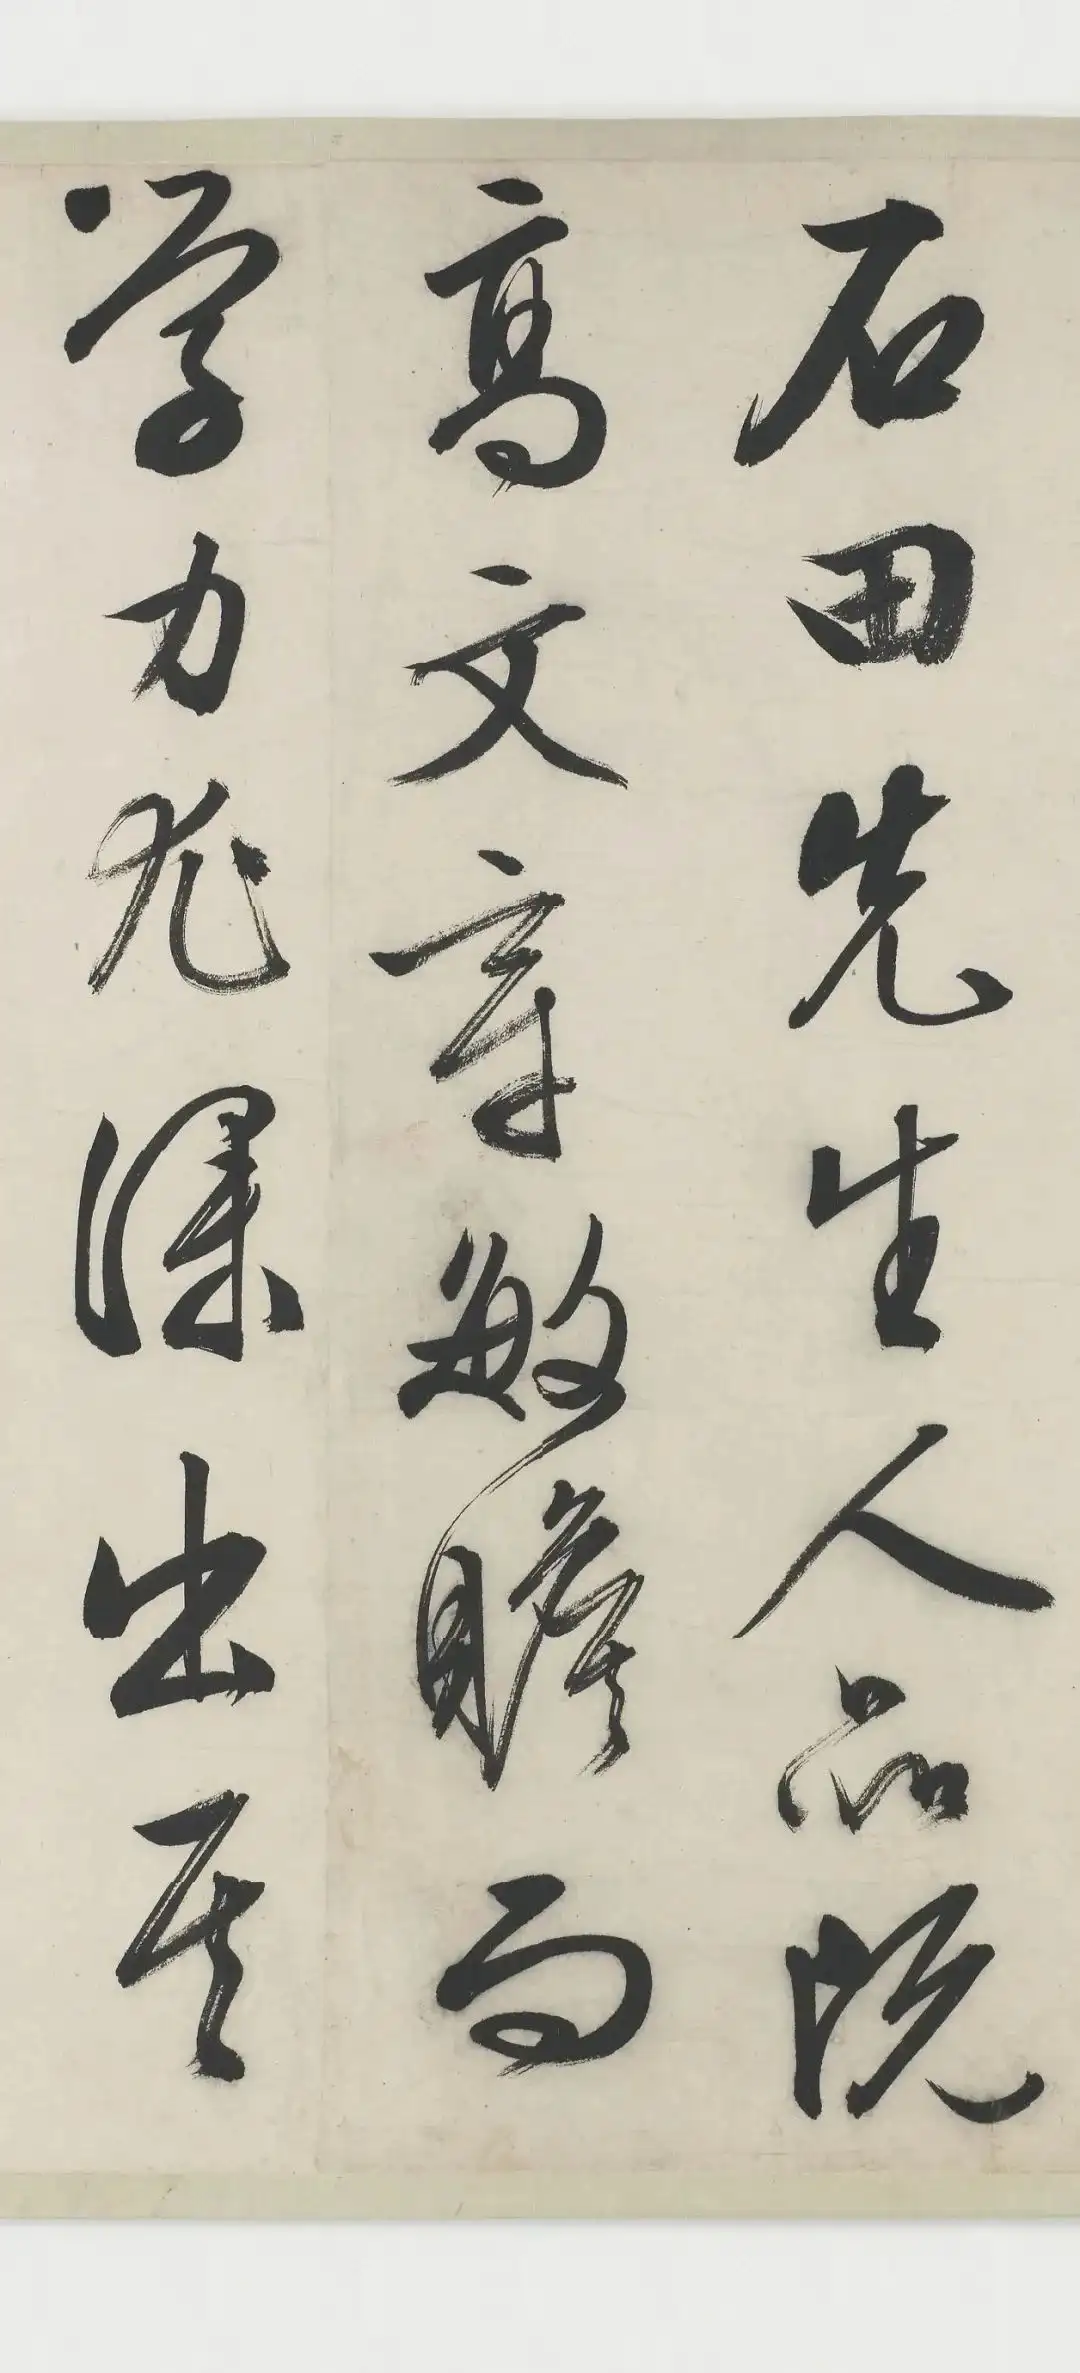 石田先生人品既
高文章敏贍而
学力尤深出其